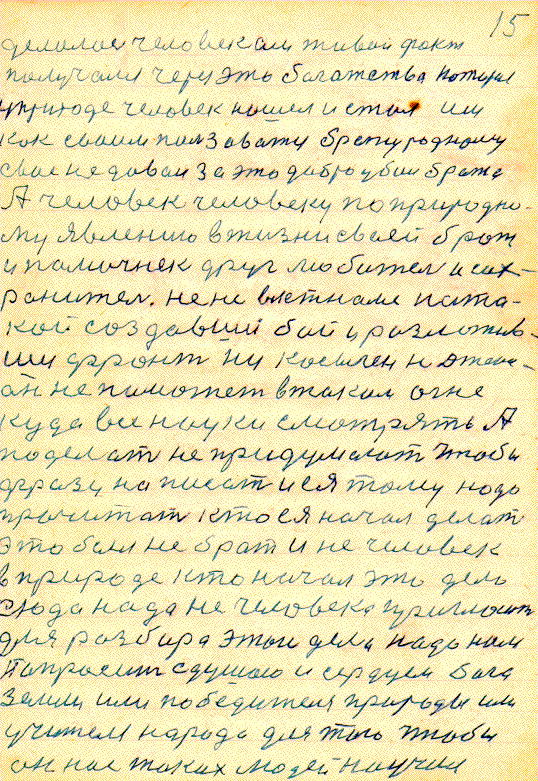 15
делалось человекам живой факт
получали через это богатства которы
у природе человек нашел и стал им
как своим ползоваться брату родному
свое не давал за это добро убил брата
А человек человеку по природно-
му явлению в жизни своей брат
и помочнек друг любител и сох-
ранител. не на вистнам ната-
кой создавший бой и разложив-
ши фронт ни
он не поможет в таком огне
куда вси науки смотрять А
поделат не придумалот чтобы
фразу написат и ея тому надо
прочитат кто ея начал делат
это был не брат и не человек
в природе кто начал это дело
сюда нада не человека пригласит
для разбора этои дела надо нам
Попросит с душою и сердцем Бога
Земли или победителя природы или
учителя народа для того чтобы
он нас таких людей научил